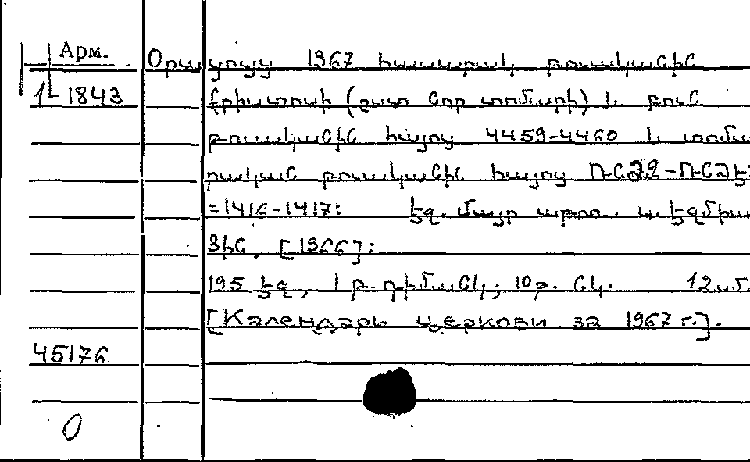 Арм.
1- 1843
Օրացույց 1967 հասարակ թուականին
Քրիստոսի (ըստ նոր տոմարի) և բուն
թուականին հայոց 4459-4460 և տոմա
րական թուականին հայոց ՌՆԺԶ-ՌՆԺԷ
=1416-1417: Էջ. մայր աթոռ. Ս. Էջմիա
ծին, [1966]:
195 էջ, 1 թ. դիմանկ.; 10 թ. նկ. 12
[Календарь церкови за 1967 г.].
45176
0